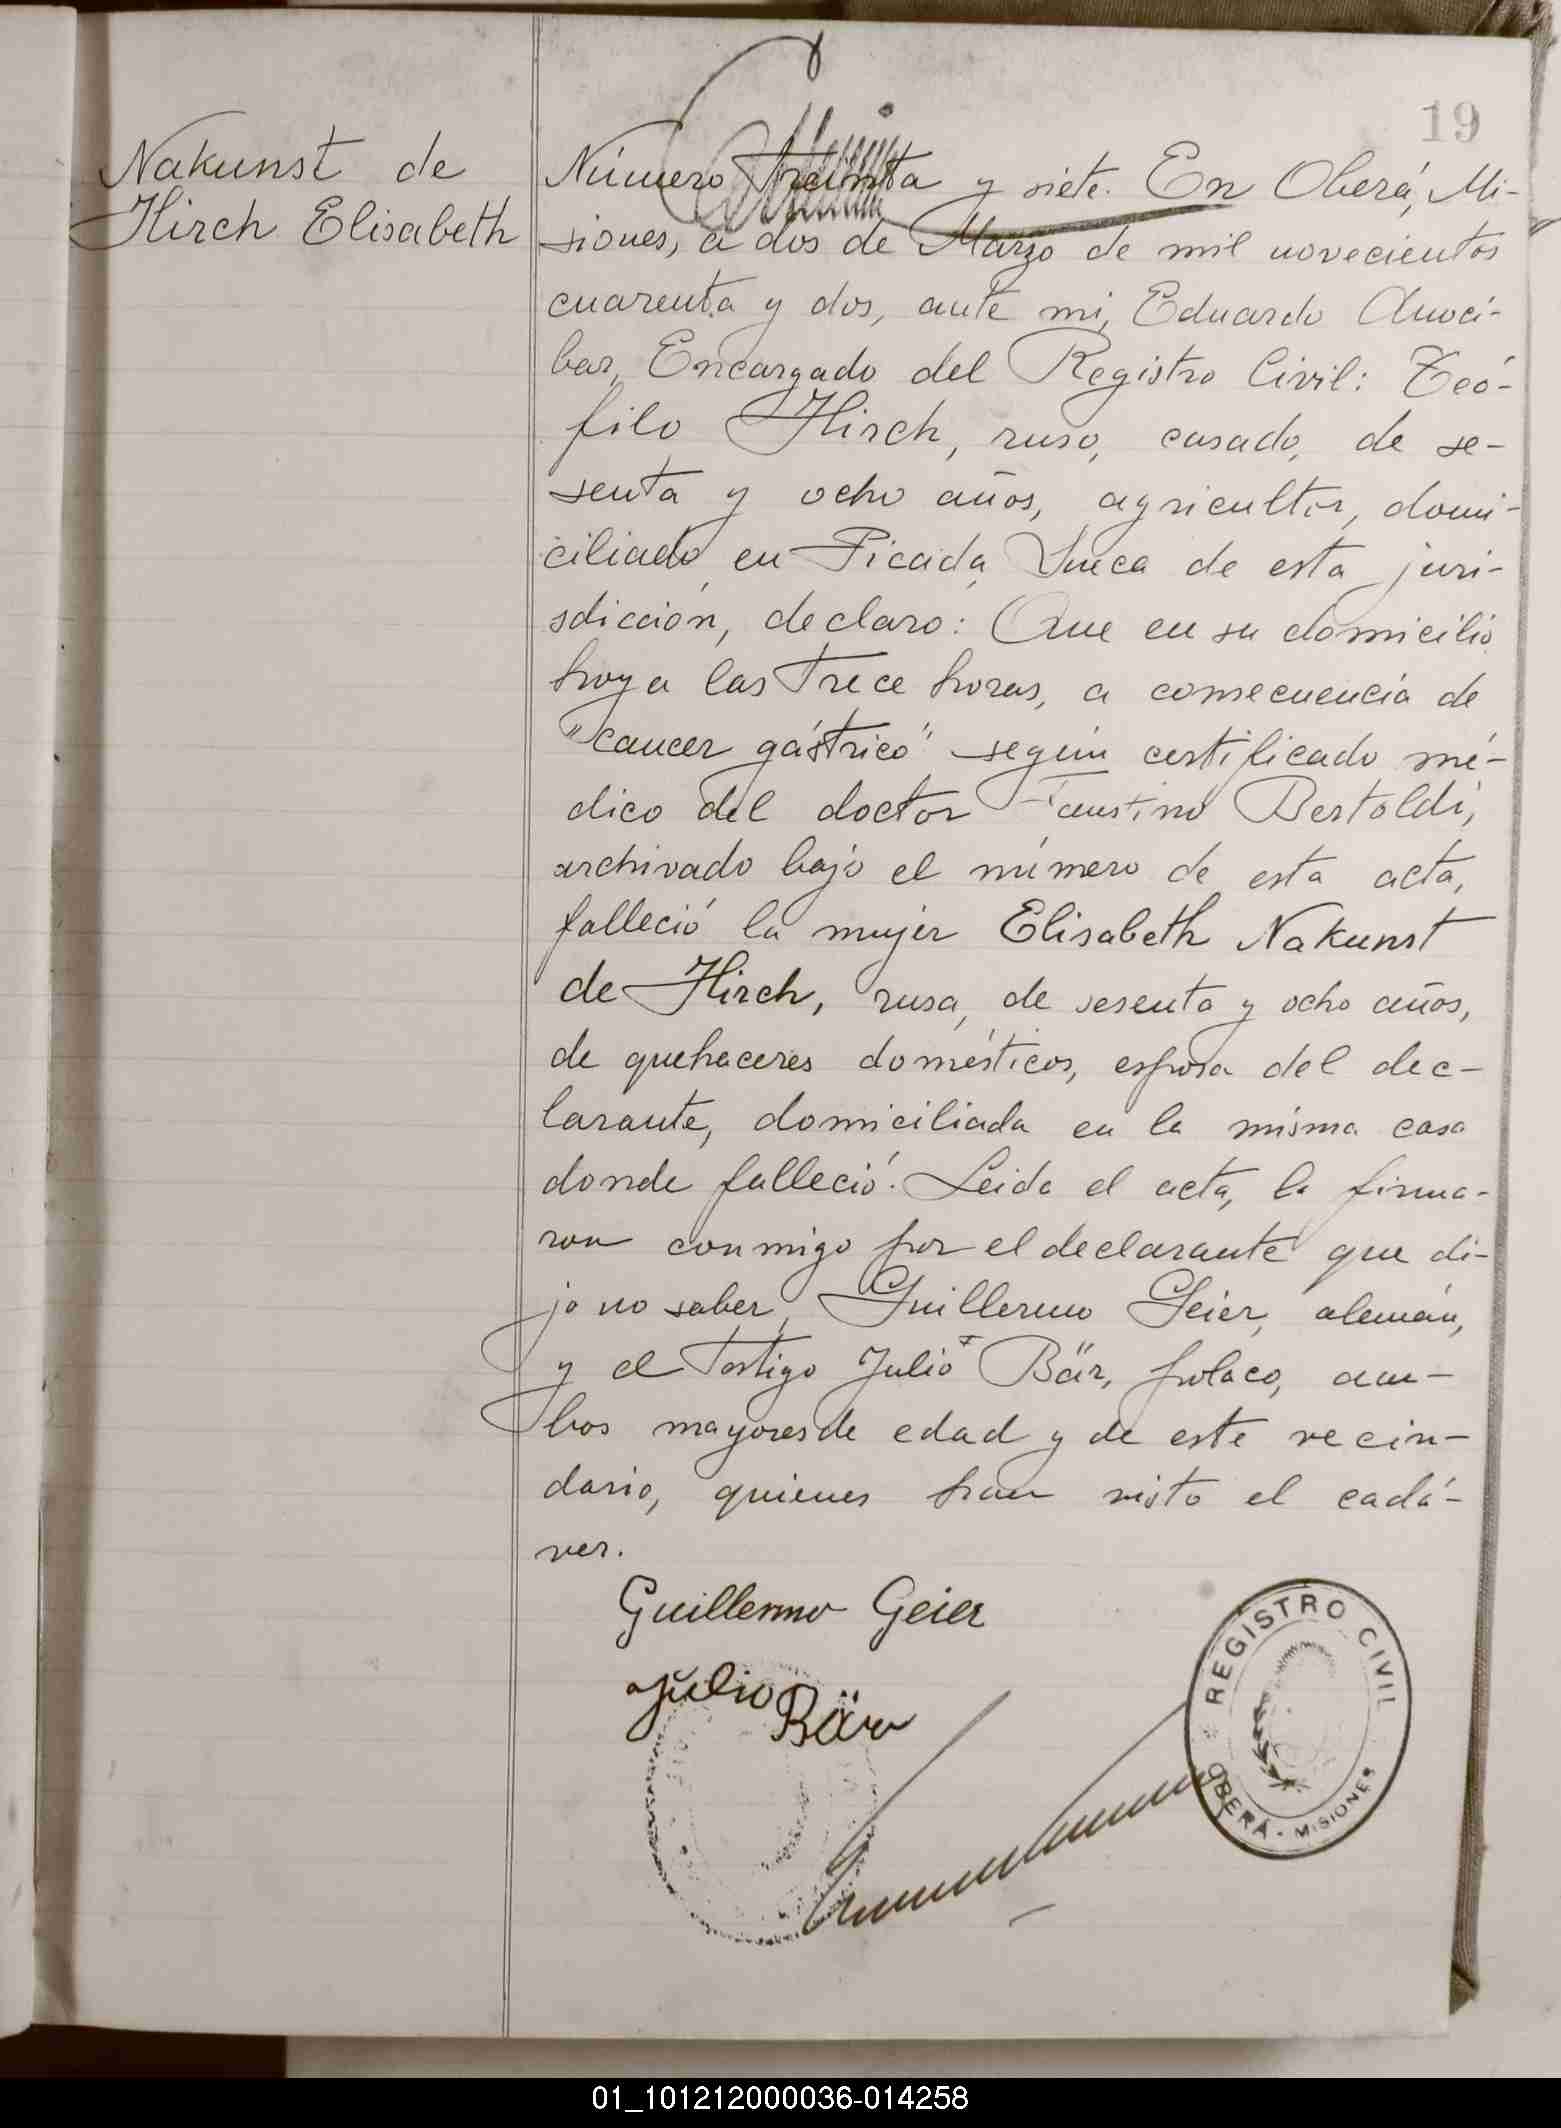 19
Nakunst de
Hirch Elisabeth
Número Treinta y siete. En Oberá, Mi-
siones, a dos de Marzo de mil novecientos
cuarenta y dos, ante mi, Eduardo Amoci-
bar, Encargado del Registro Civil: Teó-
filo Hirch, ruso, casado, de se-
senta y ocho años, agricultor, domi-
ciliado en Picada Sueca de esta juri-
sdicción, declaro: Que en su domicilio
hoy a las Trece horas, a consecuencia de
"cancer gástrico" según certificado mé-
dico del doctor Faustino Bertoldi,
archivado bajo el número de esta acta,
falleció la mujer Elisabeth Nakunst
de Hirch, rusa, de sesenta y ocho años,
de quehaceres domésticos, esposa del dec-
larante, domiciliada en la misma casa
donde falleció. Leida el acta, la firma-
ron conmigo por el declarante que di-
jo no saber, Guillermo Geier, alemán,
y el Testigo Julio Bär, polaco, am-
bos mayores de edad y de este vecin-
dario, quienes han visto el cadá-
ver.
Guillermo Geier
Julio Bär
REGISTRO CIVIL
OBERÁ - MISIONES
01_101212000036-014258